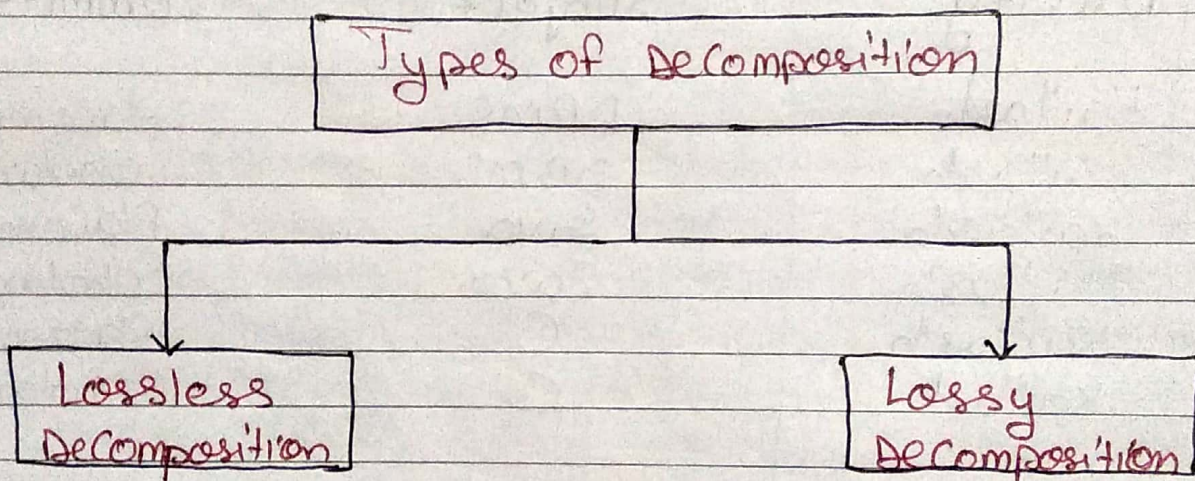 Types of Decomposition
Lossless
Decomposition
Lossy
Decomposition